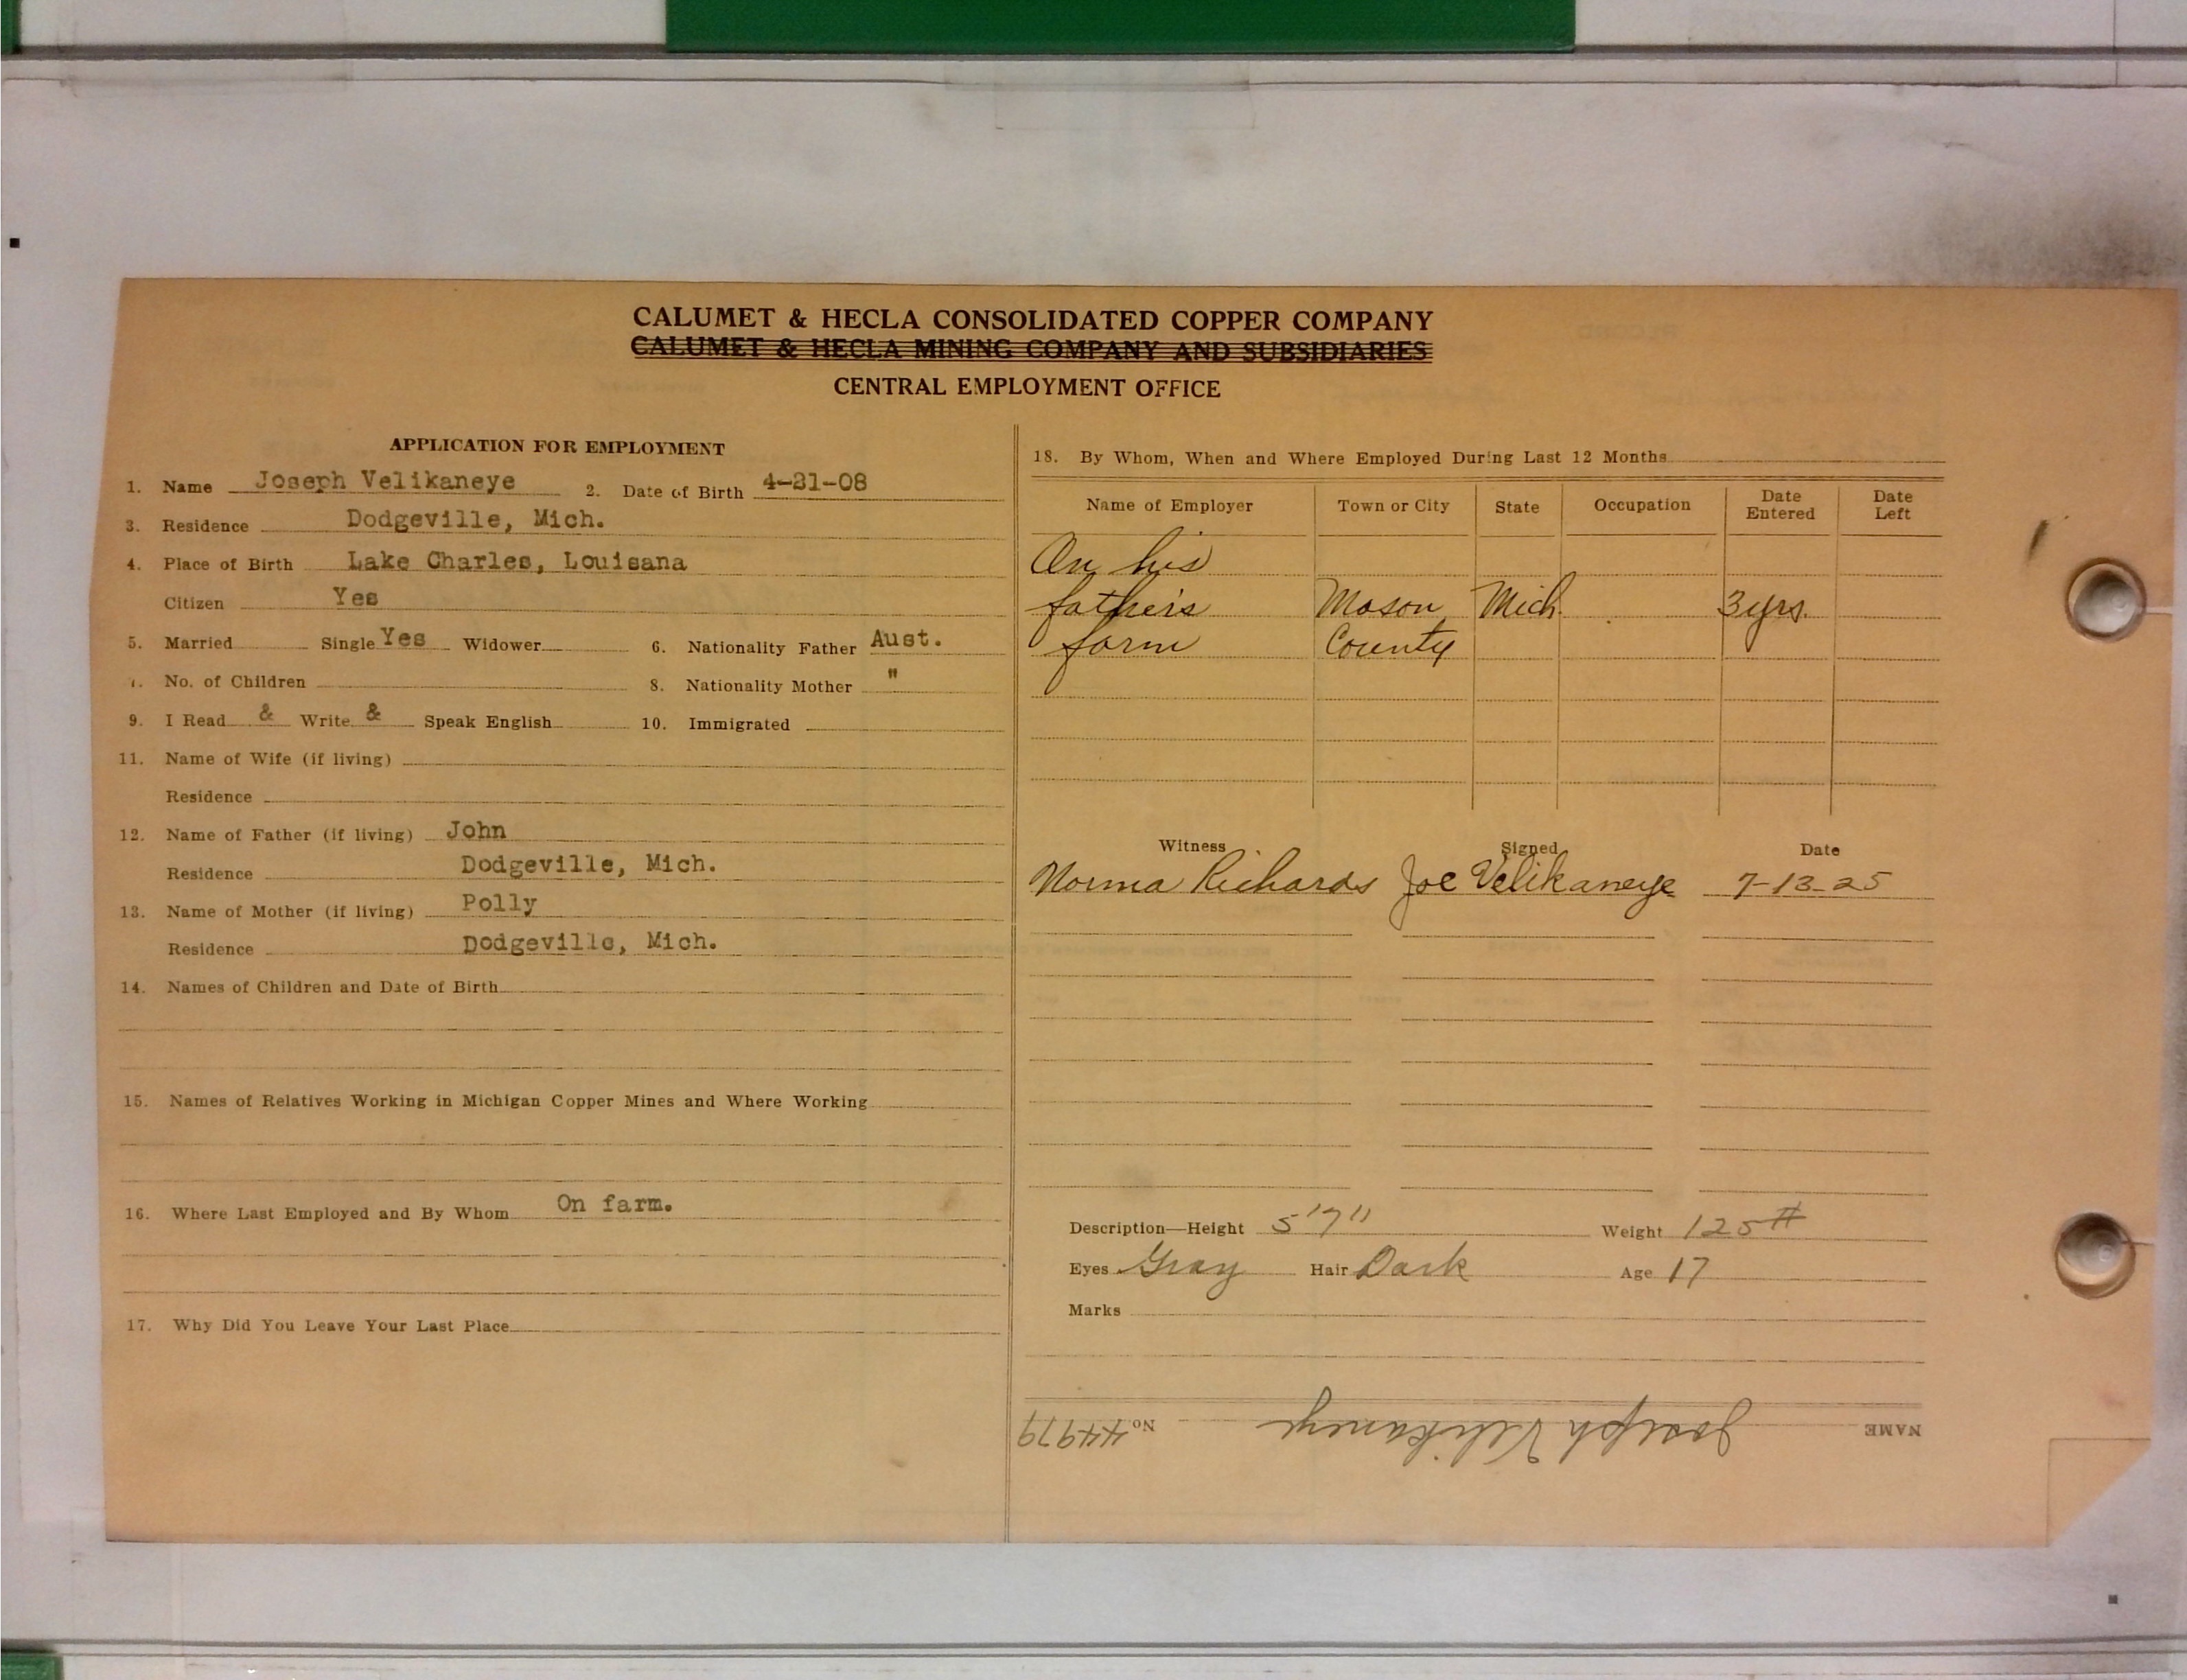 CALUMET & HECLA CONSOLIDATED COPPER COMPANY
CALUMET & HECLA MINING COMPANY AND SUBSIDIARIES
CENTRAL EMPLOYMENT OFFICE
APPLICATION FOR EMPLOYMENT
1. Name Joseph Velikaneye 2. Date of Birth 4-21-08
3. Residence Dodgeville, Mich.
4. Place of Birth Lake Charles, Louisana
Citizen Yes
5. Married Single Yes Widower 6. Nationality Father Aust.
7. No. of Children 8. Nationality Mother "
9. I Read & Write & Speak English 10. Immigrated
11. Name of Wife (if living)
Residence
12. Name of Father (if living) John
Residence Dodgeville, Mich.
13. Name of Mother (if living) Polly
Residence Dodgeville, Mich.
14. Names of Children and Date of Birth
15. Names of Relatives Working in Michigan Copper Mines and Where Working
16. Where Last Employed and By Whom On farm.
17. Why Did You Leave Your Last Place
18. By Whom, When and Where Employed During Last 12 Months
Name of Employer Town or City State Occupation Date Entered Date Left
On his
father's Mason Mich. 3 yrs.
farm County
Witness Signed Date
Norma Richards Joe Velikaneye 7-13-25
Description—Height 5'7" Weight 125#
Eyes Gray Hair Dark Age 17
Marks
NAME Joseph Velikaneye No. 44979